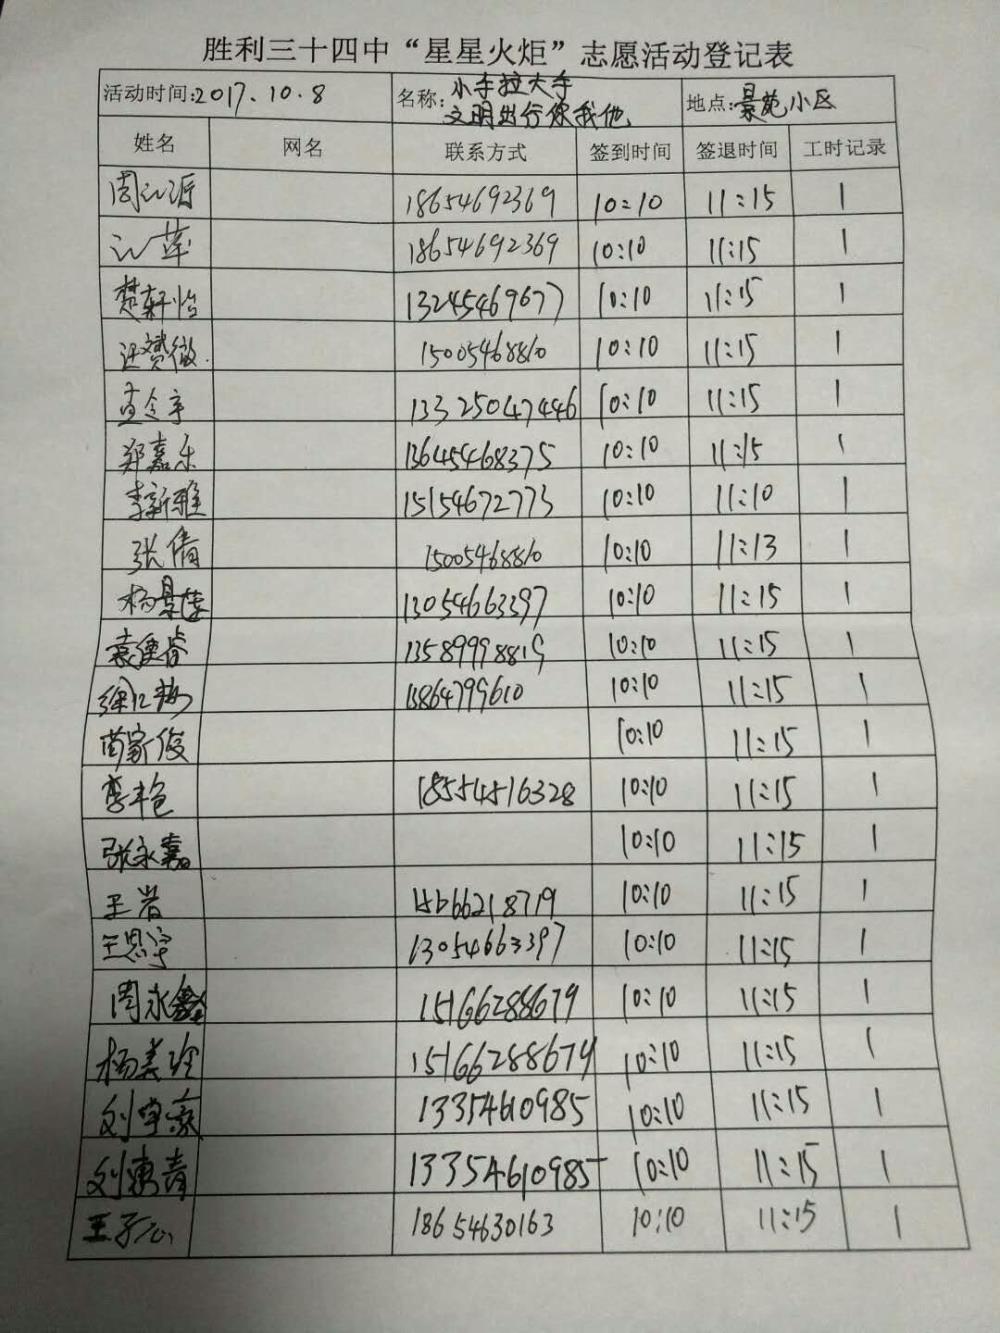 胜利三十四中“星星火炬”志愿活动登记表
活动时间:2017.10.8 名称:小手拉大手 文明出行你我他 地点:景苑小区
姓名 网名 联系方式 签到时间 签退时间 工时记录
18654692369 10:10 11:15 1
18654692369 10:10 11:15 1
楚轩怡 13245469677 10:10 11:15 1
15005468810 10:10 11:15 1
13325047446 10:10 11:15 1
郑嘉乐 13645468375 10:10 11:15 1
李新雅 15154672773 10:10 11:10 1
张倩 15005468810 10:10 11:13 1
杨景 13054663397 10:10 11:15 1
袁 13589998819 10:10 11:15 1
徐 13864799610 10:10 11:15 1
苗家俊 10:10 11:15 1
李 18554516328 10:10 11:15 1
张永嘉 10:10 11:15 1
王岩 10:10 11:15 1
王思宇 13054663397 10:10 11:15 1
周永鑫 15166288679 10:10 11:15 1
杨美玲 15166288679 10:10 11:15 1
刘宇豪 13354610985 10:10 11:15 1
刘 青 13354610985 10:10 11:15 1
王子心 18654630163 10:10 11:15 1